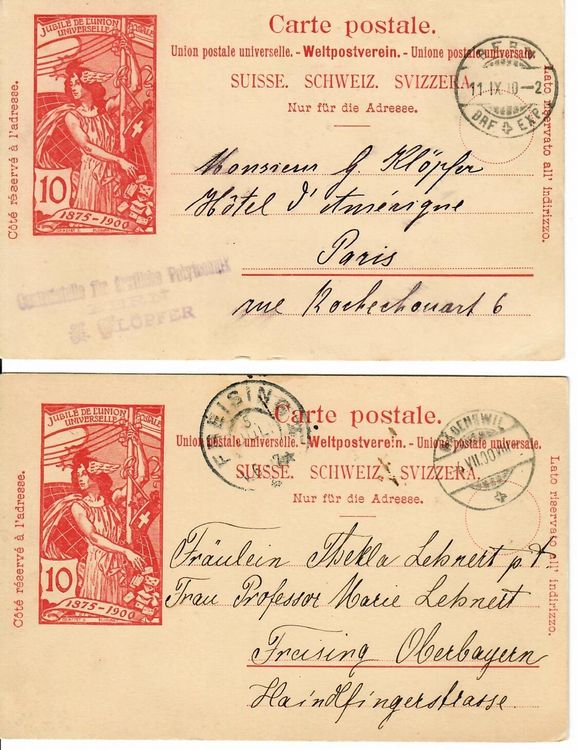 JUBILÉ DE L'UNION
UNIVERSELLE POSTALE
10
1875-1900
Côté réservé à l'adresse.
Carte postale.
Union postale universelle. - Weltpostverein. - Unione postale universale.
SUISSE. SCHWEIZ. SVIZZERA.
Nur für die Adresse.
Lato riservato all' indirizzo.
BERN
11.IX.10-2
BRF EXP.
Monsieur G. Klöpfer
Hôtel d'Amérique
Paris
rue Rochechouart 6
Centralstelle für
KLÖPFER
JUBILÉ DE L'UNION
UNIVERSELLE POSTALE
10
1875-1900
Côté réservé à l'adresse.
FREISING
Carte postale.
Union postale universelle. - Weltpostverein. - Unione postale universale.
SUISSE. SCHWEIZ. SVIZZERA.
Nur für die Adresse.
Lato riservato all' indirizzo.
VII.00
Fräulein Thekla Lehnert p. ad.
Frau Professor Marie Lehnert
Freising Oberbayern
Haindlfingerstrasse.